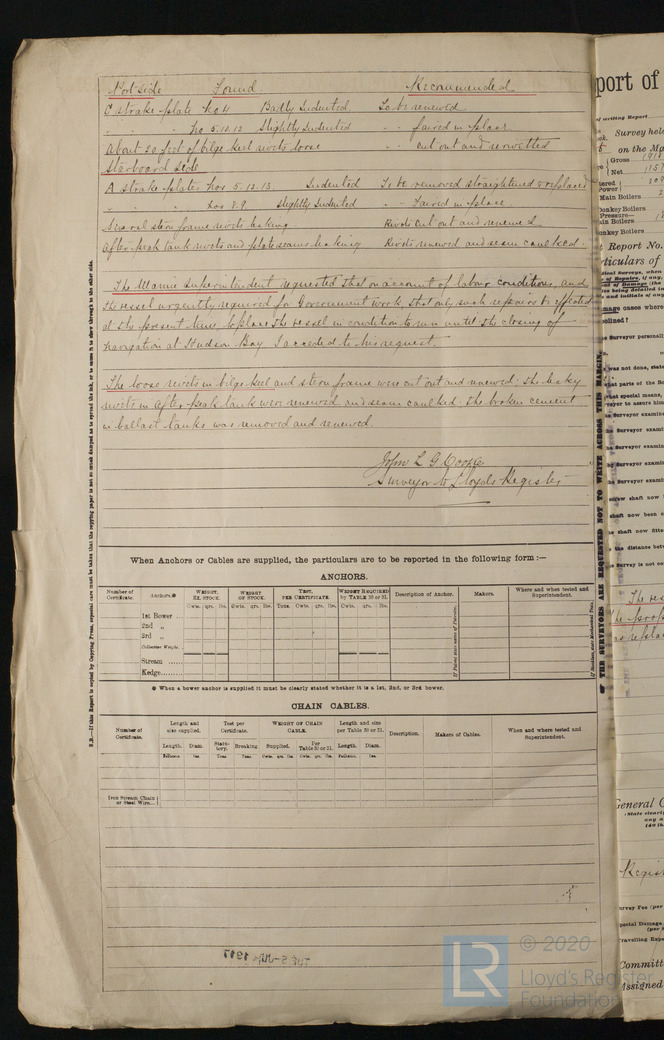 Port side Found Recommended
C strake plate No 4 Badly Indented To be renewed
" " " No 5.10.12 Slightly Indented " " faired in place
About 20 feet of bilge keel rivets loose " " cut out and reriveted
Starboard side
A strake plates Nos 5.12.13. Indented To be removed straightened & replaced
" " " Nos 8.9 slightly Indented " " Faired in place
Several stern frame rivets leaking Rivets cut out and renewed
After peak tank rivets and plate seams leaking Rivets renewed and seam caulked.
The Marine Superintendent requested that on account of labour conditions, and
the vessel urgently required for Government work, that only such repairs be effected
at the present time, to place the vessel in condition to run until the closing of
navigation at Hudson Bay I acceded to his request.
The loose rivets in bilge keel and stern frame were cut out and renewed. The leaky
rivets in after peak tank were renewed and seam caulked. The broken cement
in ballast tanks was removed and renewed.
John L G
Surveyor to Lloyds Register
When Anchors or Cables are supplied, the particulars are to be reported in the following form :—
ANCHORS.
Number of Certificate. Anchors.* WEIGHT, EX. STOCK. WEIGHT OF STOCK. TEST, PER CERTIFICATE. WEIGHT REQUIRED by TABLE 30 or 31. Description of Anchor. Makers. Where and when tested and Superintendent.
Cwts. qrs. lbs. Cwts. qrs. lbs. Tons. Cwts. qrs. lbs. Cwts. qrs. lbs.
1st Bower
2nd "
3rd "
Collective Weight
Stream
Kedge
* When a bower anchor is supplied it must be clearly stated whether it is a 1st, 2nd, or 3rd bower.
CHAIN CABLES.
Number of Certificate. Length and size supplied. Test per Certificate. WEIGHT OF CHAIN CABLE. Length and size per Table 30 or 31. Description. Makers of Cables. When and where tested and Superintendent.
Length. Diam. Statutory. Breaking. Supplied. Per Table 30 or 31. Length. Diam.
Fathoms. Ins. Tons. Tons. Cwts. qrs. lbs. Cwts. qrs. lbs. Fathoms. Ins.
Iron Stream Chain or Steel Wire
N.B.—If this Report is copied by Copying Press, especial care must be taken that the copying paper is not so much damped as to spread the ink, or to cause it to show through to the other side.
1917
LR © 2020
Lloyd's Register
Foundation
port of
Survey held
on the
Gross
Net
Main Boilers
Donkey Boilers
Report No.
rticulars of
OF THE SURVEYORS ARE REQUESTED NOT TO WRITE ACROSS THIS MARGIN.
The
General
Regis
Survey Fee (per
Special Damage
Travelling Expe
Committ
Assigned